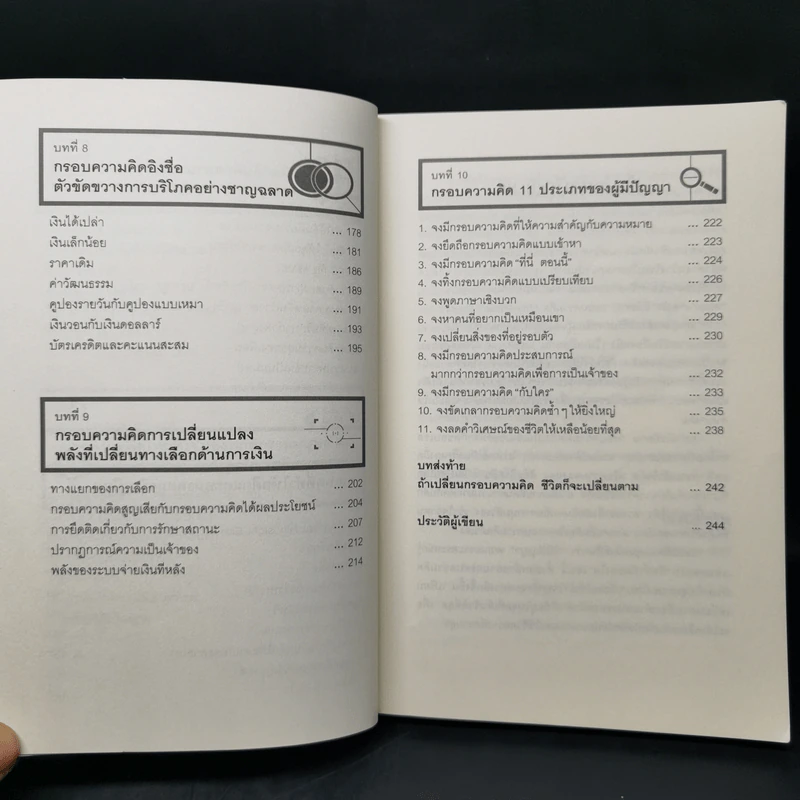 บทที่ 8
กรอบความคิดอิงชื่อ
ตัวขัดขวางการบริโภคอย่างชาญฉลาด
เงินได้เปล่า ... 178
เงินเล็กน้อย ... 181
ราคาเดิม ... 186
ค่าวัฒนธรรม ... 189
คูปองรายวันกับคูปองแบบเหมา ... 191
เงินวอนกับเงินดอลลาร์ ... 193
บัตรเครดิตและคะแนนสะสม ... 195
บทที่ 9
กรอบความคิดการเปลี่ยนแปลง
พลังที่เปลี่ยนทางเลือกด้านการเงิน
ทางแยกของการเลือก ... 202
กรอบความคิดสูญเสียกับกรอบความคิดได้ผลประโยชน์ ... 204
การยึดติดเกี่ยวกับการรักษาสถานะ ... 207
ปรากฏการณ์ความเป็นเจ้าของ ... 212
พลังของระบบจ่ายเงินทีหลัง ... 214
บทที่ 10
กรอบความคิด 11 ประเภทของผู้มีปัญญา
1. จงมีกรอบความคิดที่ให้ความสำคัญกับความหมาย ... 222
2. จงยึดถือกรอบความคิดแบบเข้าหา ... 223
3. จงมีกรอบความคิด “ที่นี่ ตอนนี้” ... 224
4. จงทิ้งกรอบความคิดแบบเปรียบเทียบ ... 226
5. จงพูดภาษาเชิงบวก ... 227
6. จงหาคนที่อยากเป็นเหมือนเขา ... 229
7. จงเปลี่ยนสิ่งของที่อยู่รอบตัว ... 230
8. จงมีกรอบความคิดประสบการณ์
มากกว่ากรอบความคิดเพื่อการเป็นเจ้าของ ... 232
9. จงมีกรอบความคิด “กับใคร” ... 233
10. จงขัดเกลากรอบความคิดซ้ำๆ ให้ยิ่งใหญ่ ... 235
11. จงลดคำวิเศษณ์ของชีวิตให้เหลือน้อยที่สุด ... 238
บทส่งท้าย
ถ้าเปลี่ยนกรอบความคิด ชีวิตก็จะเปลี่ยนตาม ... 242
ประวัติผู้เขียน ... 244